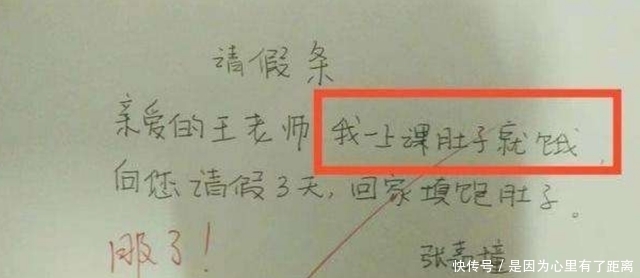 请假条
亲爱的王老师 我一上课肚子就饿,
向您请假3天,回家填饱肚子。
服了!
张嘉培
快传号/是因为心里有了距离